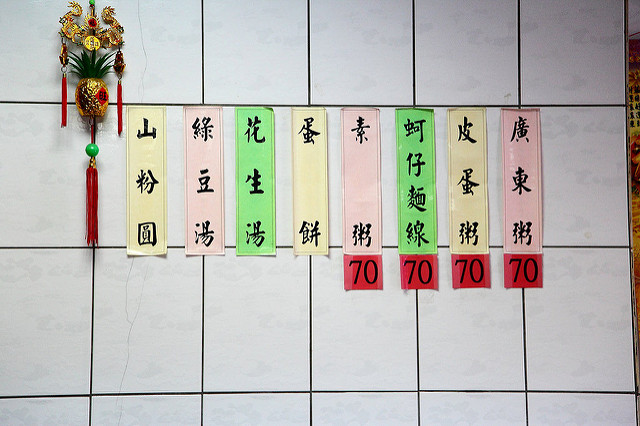 廣東粥
70
皮蛋粥
70
蚵仔麵線
70
素粥
70
蛋餅
花生湯
綠豆湯
山粉圓